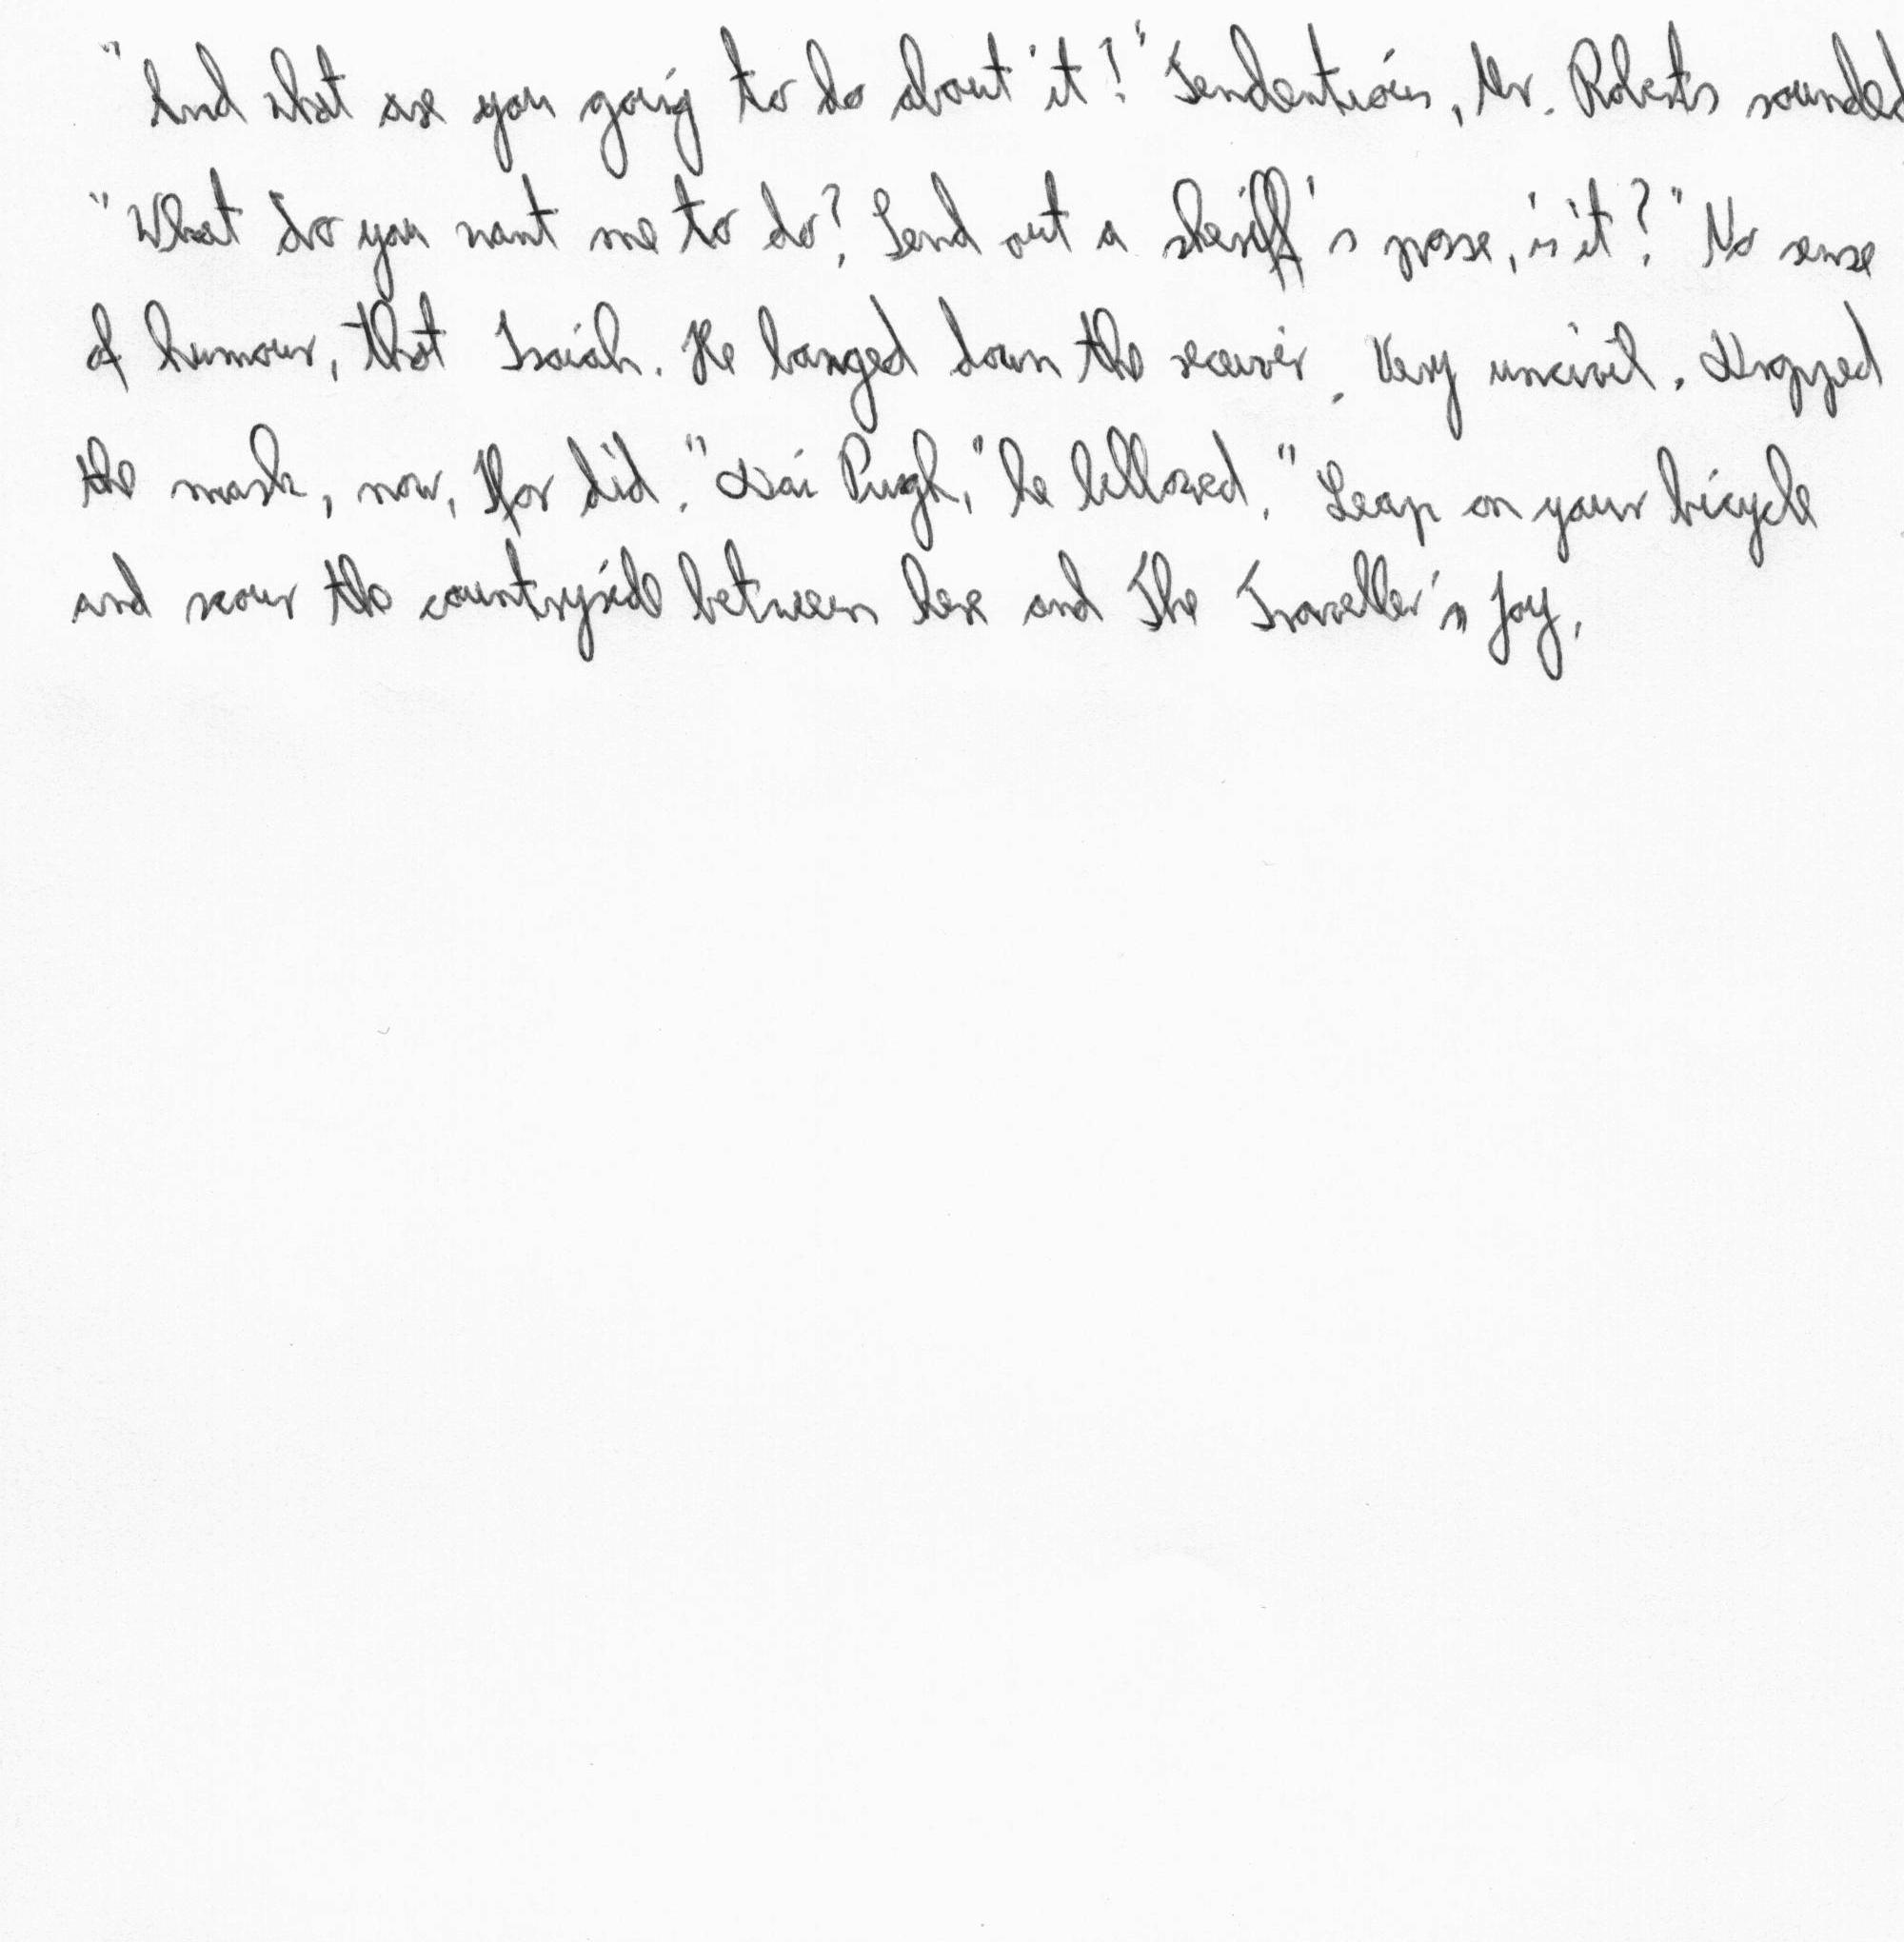 "And what are you going to do about it?" Tendentious, Mr. Roberts sounded
"What do you want me to do? Send out a sheriff's posse, is it?" No sense
of humour, that Isaiah. He banged down the receiver. Very uncivil. Dropped
the mask, now, Ifor did. "Dai Pugh," he bellowed. "Leap on your bicycle
and scour the countryside between here and The Traveller's Joy,